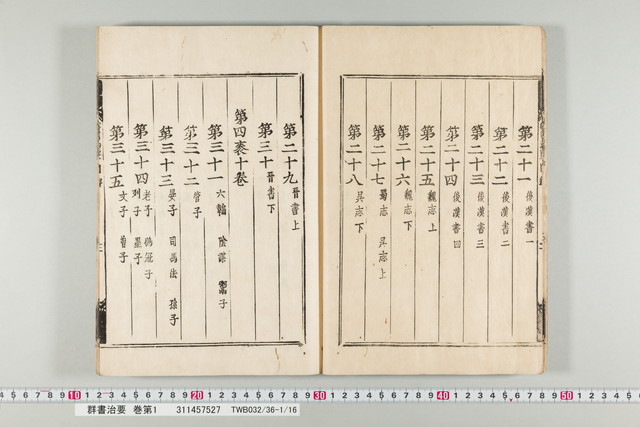 第二十一 後漢書一
第二十二 後漢書二
第二十三 後漢書三
第二十四 後漢書四
第二十五 魏志上
第二十六 魏志下
第二十七 蜀志 吳志上
第二十八 吳志下
第二十九 晉書上
第三十 晉書下
第四袠十卷
第三十一 六韜 陰謀 鬻子
第三十二 管子
第三十三 晏子 司馬法 孫子
第三十四 老子 鶡冠子 列子 墨子
第三十五 文子 曾子
10 20 30 40 50
群書治要 巻第1 311457527 TWB032/36-1/16